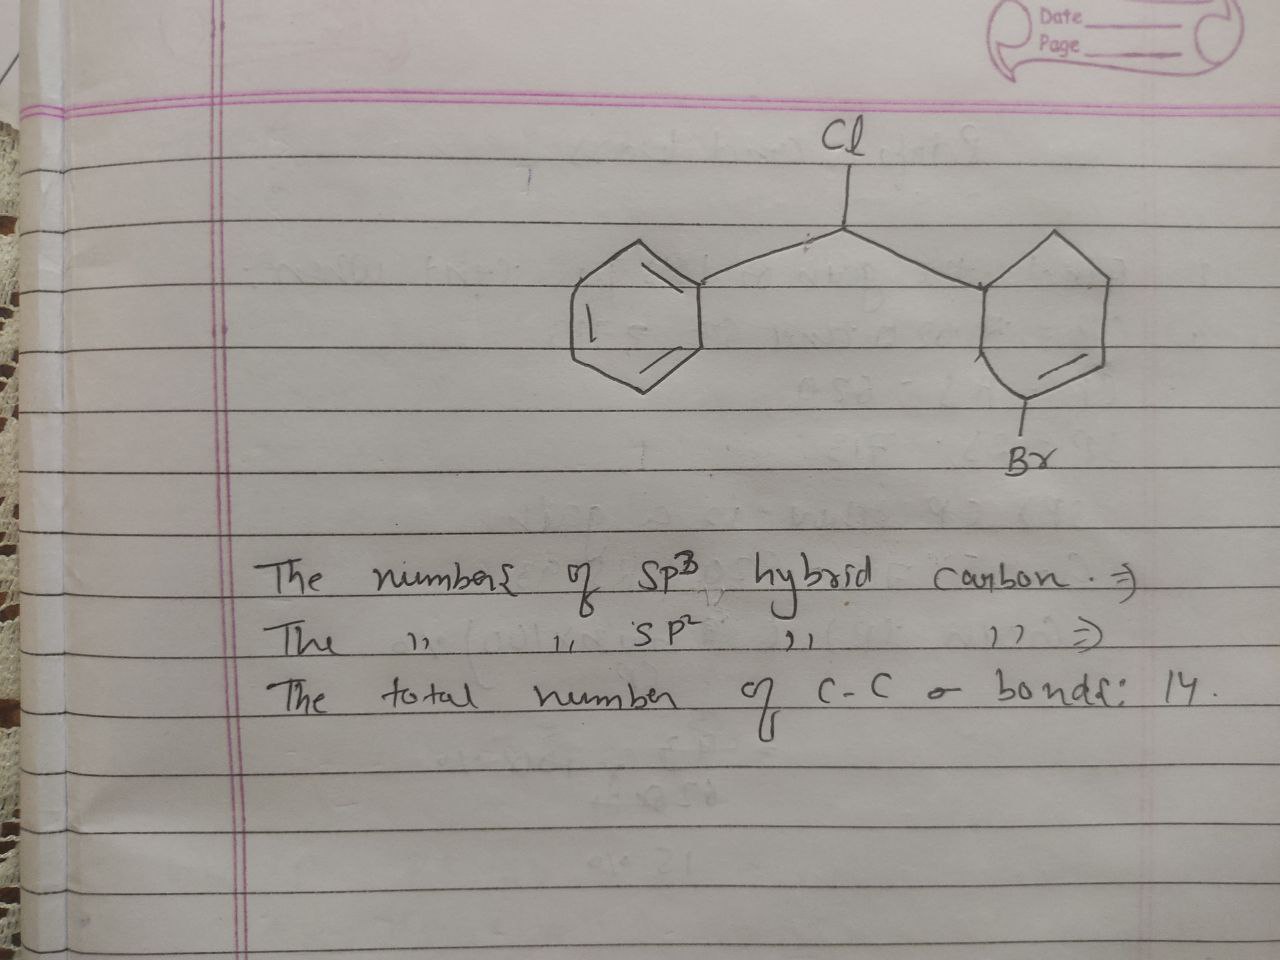 Date
Page
Cl
Br
The numbers of SP³ hybrid carbon. ⇒
The ,, ,, SP² ,, ,, ⇒
The total number of C-C σ bonds: 14.